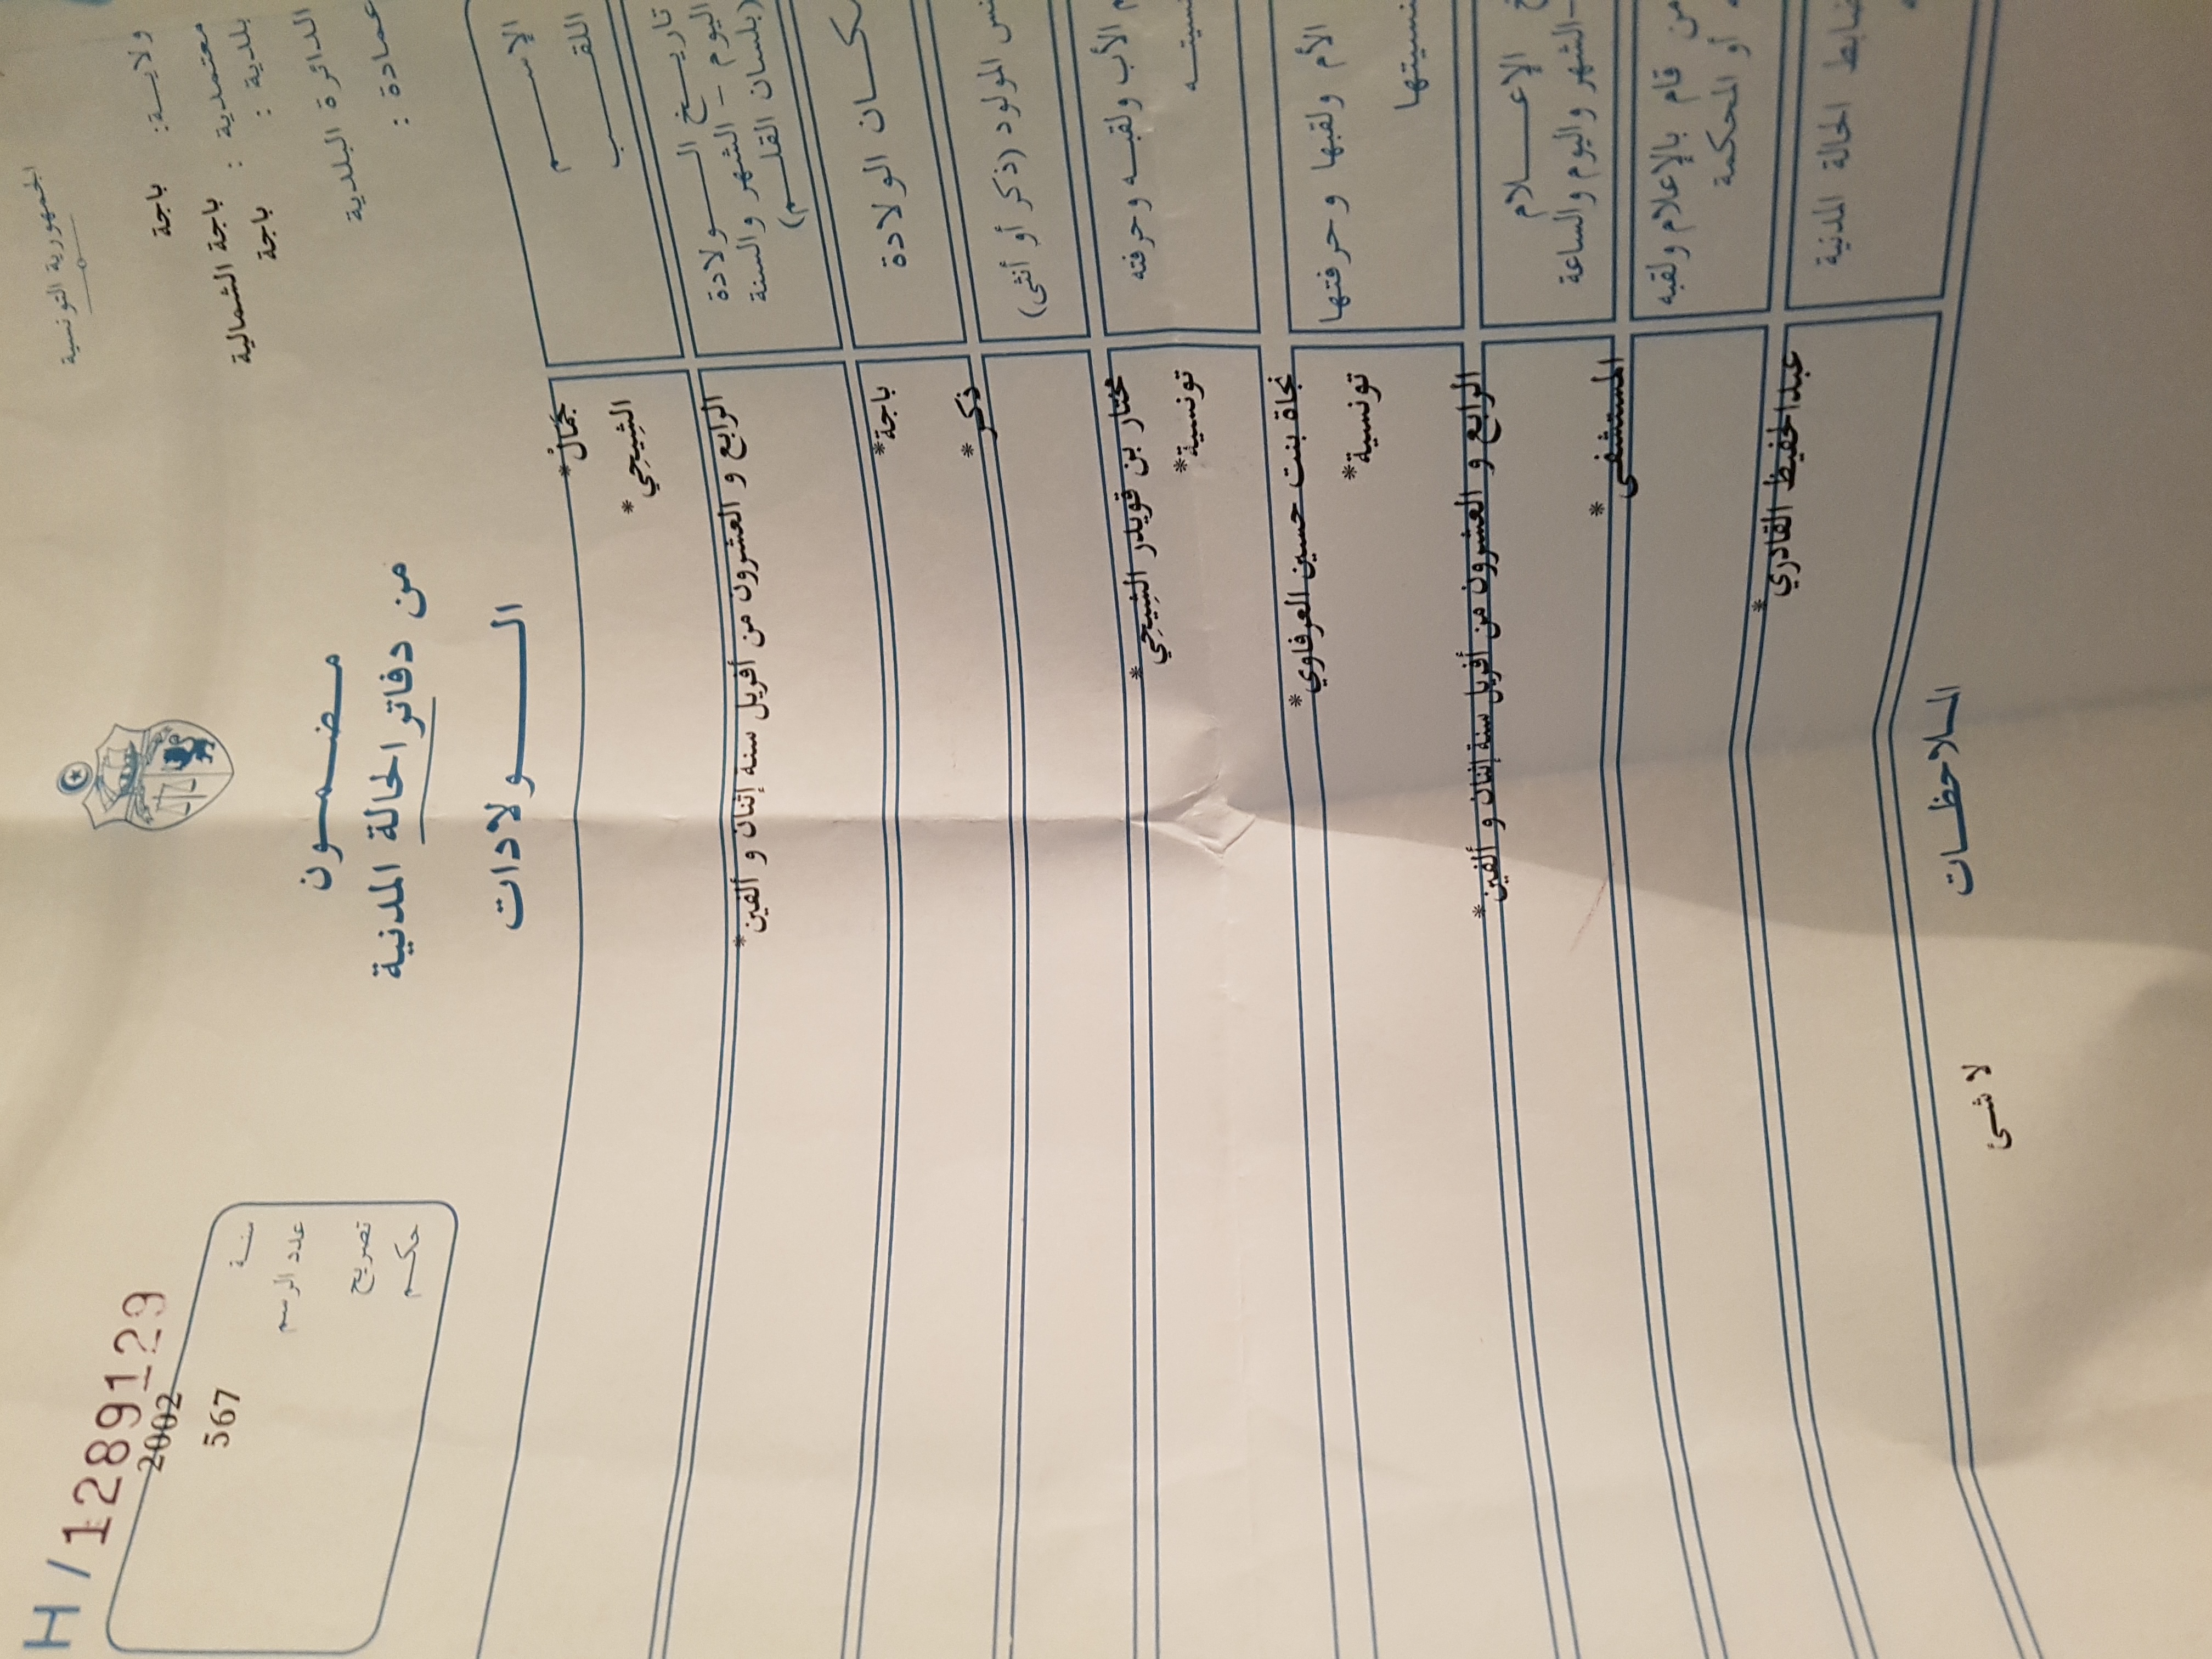 الجمهورية التونسية
ولاية: باجة
معتمدية : باجة الشمالية
بلدية : باجة
الدائرة البلدية
عمادة :
H / 12891129
2002 سنة
567 عدد الرسم
تصريح
حكم
مضمون
من دفاتر الحالة المدنية
الولادات
الإسم
جَمَالْ*
اللقب
الشِيحِي*
تاريخ الولادة
اليوم - الشهر والسنة
(بلسان القلم)
الرابع و العشرون من أفريل سنة إثنان و ألفين*
مكان الولادة
باجة*
جنس المولود (ذكر أو أنثى)
ذكر*
الأب ولقبه وحرفته
مختار بن قويدر الشِيحِي*
تونسية*
الأم ولقبها وحرفتها
نجاة بنت حسين العرفاوي*
تونسية*
الإعلام
الشهر واليوم والساعة
الرابع و العشرون من أفريل سنة إثنان و ألفين*
من قام بالإعلام ولقبه
أو المحكمة
المستشفى*
ضابط الحالة المدنية
عبدالحفيظ القادري*
الملاحظات
لا شئ